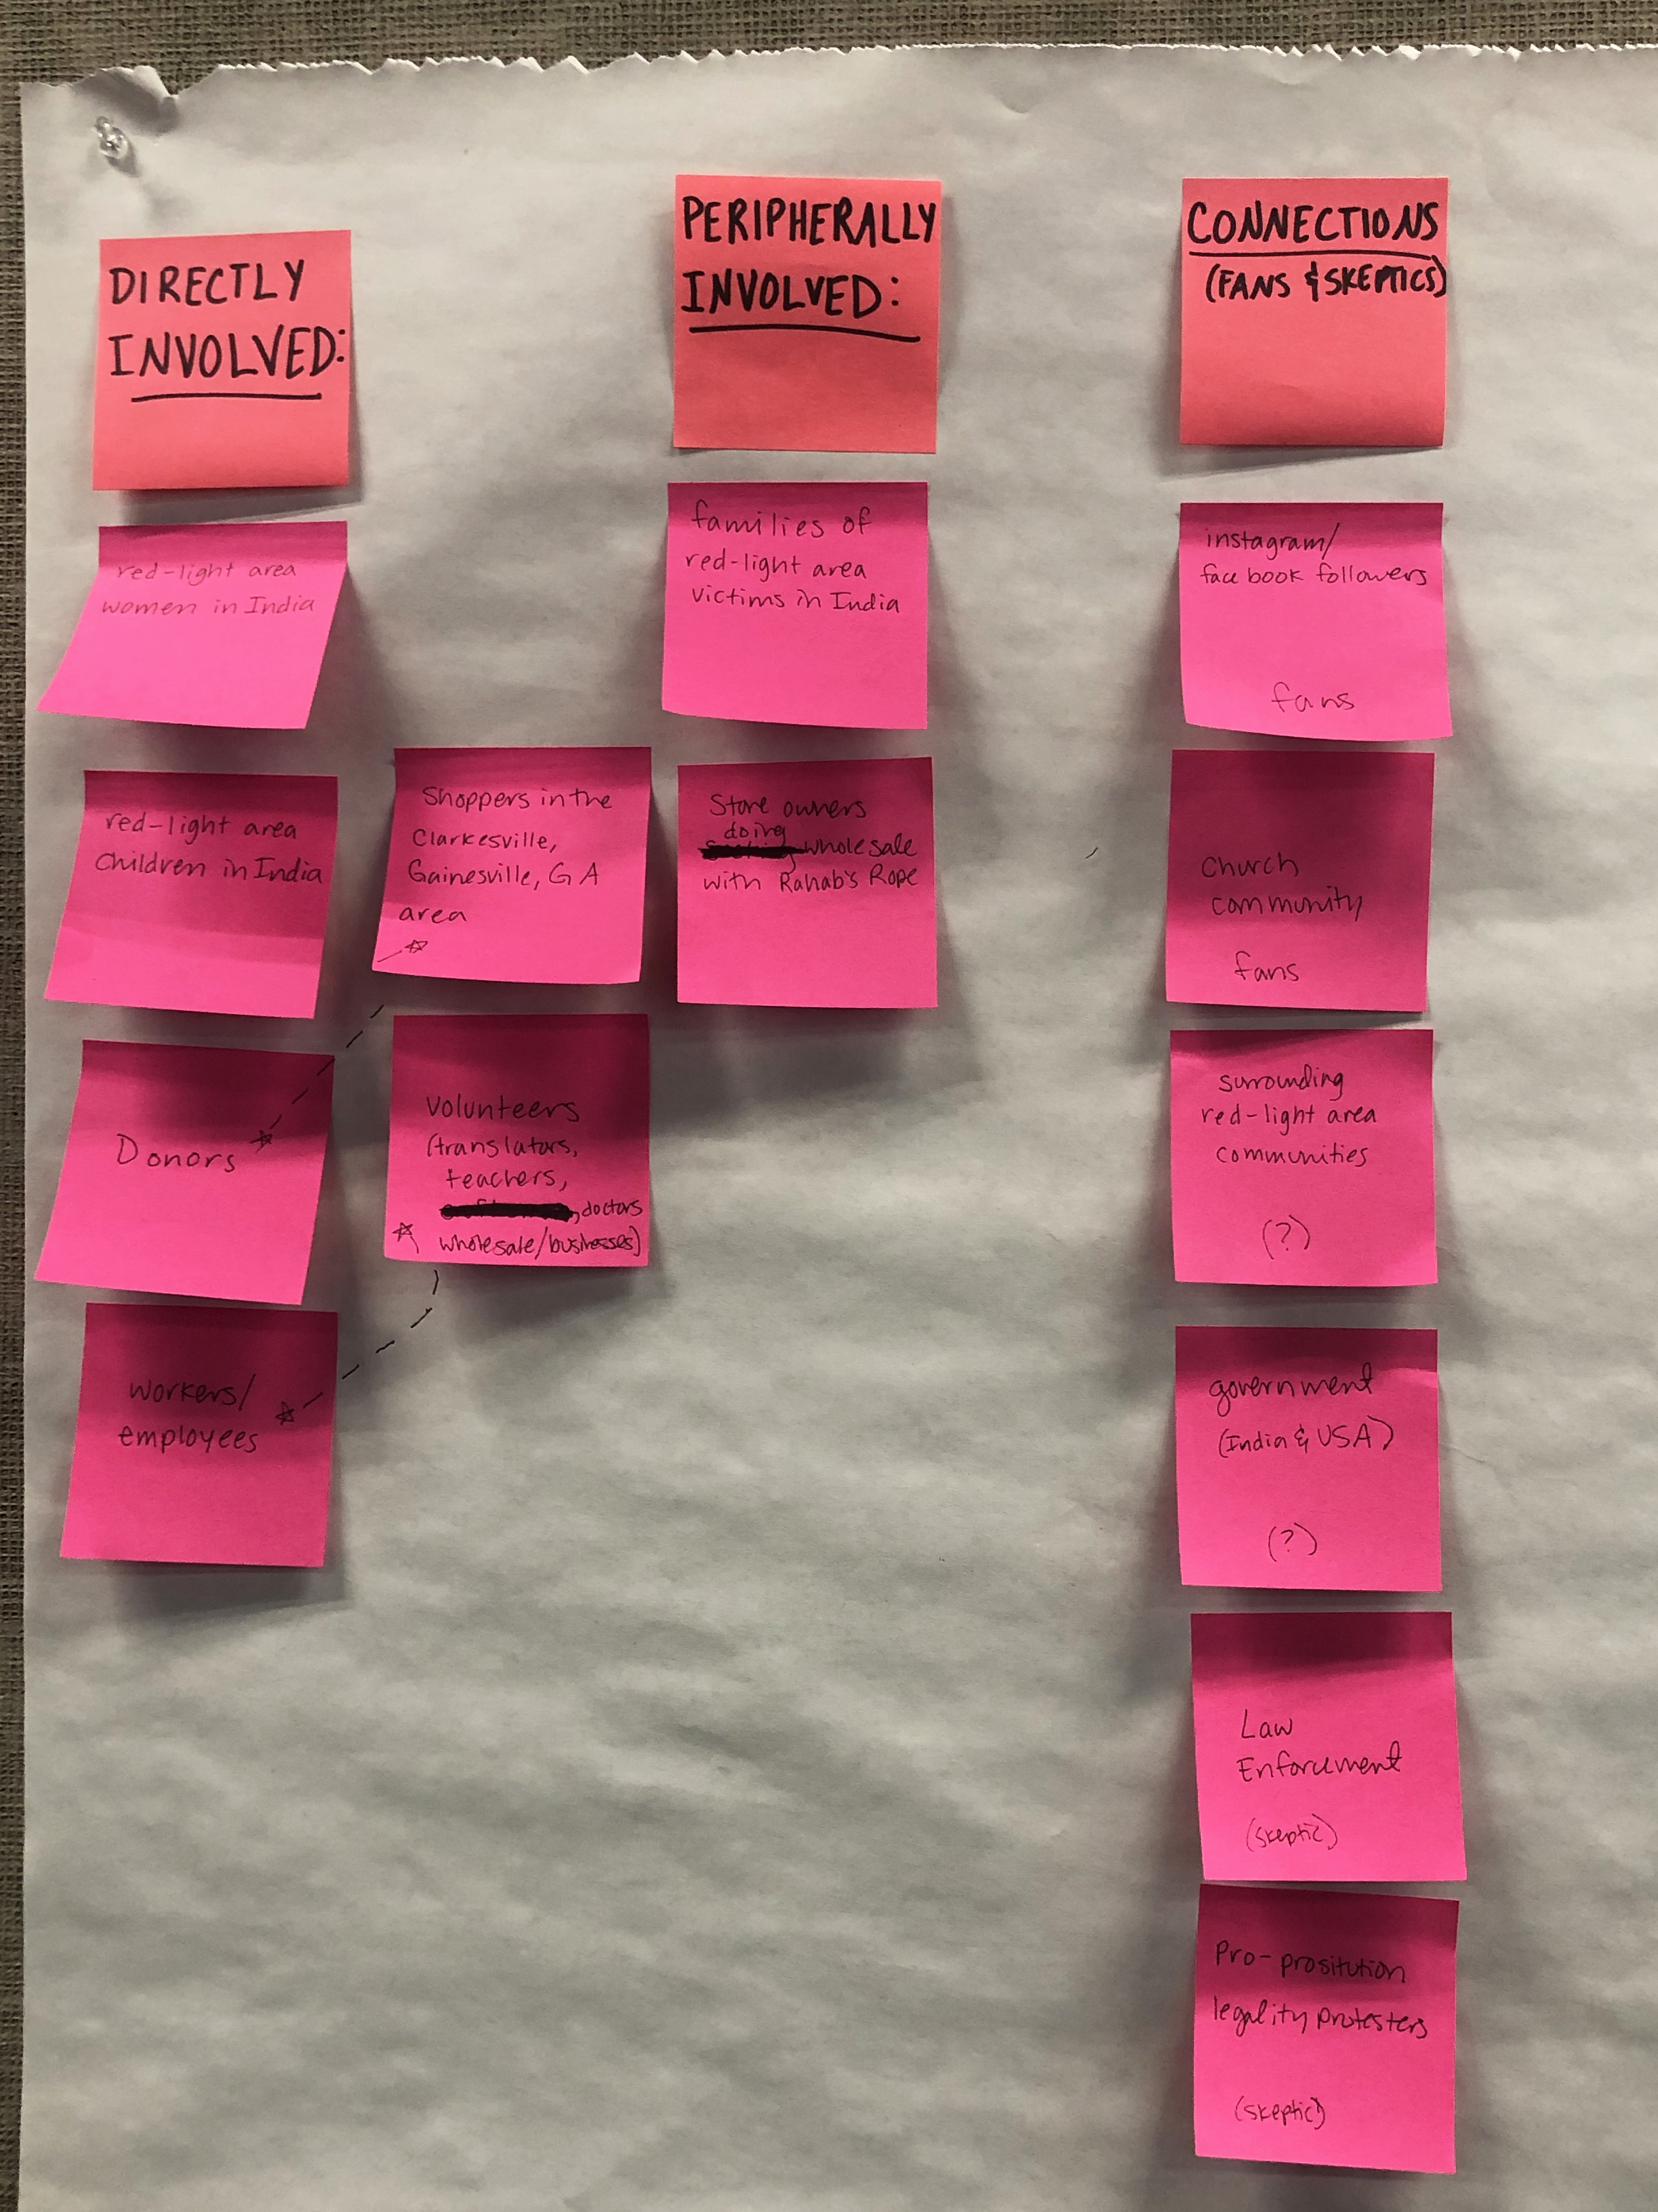 DIRECTLY
INVOLVED:
red-light area
women in India
red-light area
children in India
Donors
workers/
employees
Shoppers in the
Clarkesville,
Gainesville, GA
area
Volunteers
(translators,
teachers,
, doctors
wholesale/businesses)
PERIPHERALLY
INVOLVED:
families of
red-light area
victims in India
Store owners
doing
wholesale
with Rahab's Rope
CONNECTIONS
(FANS & SKEPTICS)
instagram/
facebook followers
fans
Church
community
fans
surrounding
red-light area
communities
(?)
government
(India & USA)
(?)
Law
Enforcement
(skeptic)
Pro-prositution
legality protesters
(skeptic)